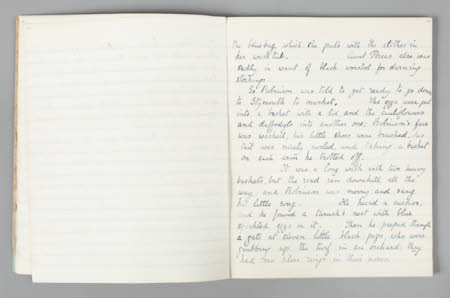 the blue-bag which she puts with the clothes in
her wash tub. Aunt Porcas also was
sadly in want of black worsted for darning
stockings.
So Robinson was told to get ready to go down
to Stymouth to market. The eggs were put
into a basket with a lid, and the cauliflowers
and daffodils into another one. Robinson's face
was washed, his little shoes were brushed, his
tail was nicely curled, and taking a basket
on each arm he trotted off.
It was a long walk with two heavy
baskets, but the road ran downhill all the
way, and Robinson was merry and sang
his little song. He heard a cuckoo,
and he found a thrush's nest with blue
speckled eggs in it. Then he peeped through
a gate at eleven little black pigs, who were
grubbing up the turf in an orchard; they
had silver rings in their noses.